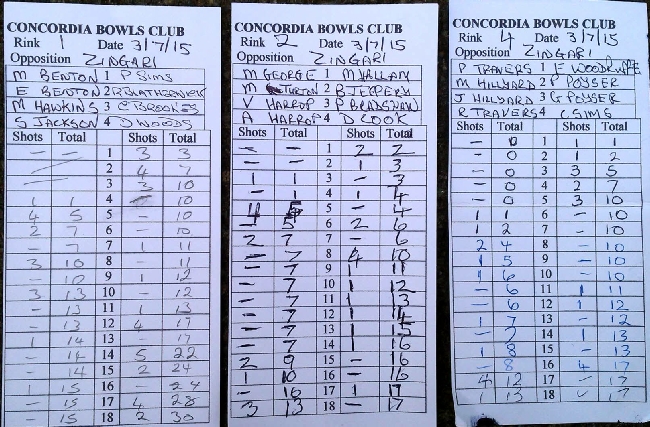 CONCORDIA BOWLS CLUB
Rink 1 Date 3/7/15
Opposition ZINGARI
M BENTON 1 P SIMS
E BENTON 2
M HAWKINS 3 C BROOKES
S JACKSON 4 D WOODS
Shots Total Shots Total
- - 1 3 3
2 4 7
3 3 10
1 1 4 - 10
4 5 5 - 10
2 7 6 - 10
- 7 7 1 11
3 10 8 - 11
- 10 9 1 12
3 13 10 - 12
- 13 11 1 13
- 13 12 4 17
1 14 13 - 17
- 14 14 5 22
- 14 15 2 24
1 15 16 - 24
- 15 17 4 28
- 15 18 2 30
CONCORDIA BOWLS CLUB
Rink 2 Date 3/7/15
Opposition ZINGARI
M GEORGE 1 M HALLAM
M TURTON 2
V HARROP 3 P BRADSHAW
A HARROP 4 D COOK
Shots Total Shots Total
- - 1 2 2
- - 2 1 3
1 1 3 - 3
- 1 4 1 4
4 5 5 - 4
- 5 6 2 6
2 7 7 - 6
- 7 8 4 10
- 7 9 1 11
- 7 10 1 12
- 7 11 1 13
- 7 12 1 14
- 7 13 1 15
- 7 14 1 16
2 9 15 - 16
1 10 16 - 16
- 10 17 1 17
3 13 18 - 17
CONCORDIA BOWLS CLUB
Rink 4 Date 3/7/15
Opposition ZINGARI
P TRAVERS 1 E WOODRUFFE
M HILLYARD 2 P POYSER
J HILLYARD 3 G POYSER
R TRAVERS 4 C SIMS
Shots Total Shots Total
- 0 1 1 1
- 0 2 1 2
- 0 3 3 5
- 0 4 2 7
- 0 5 3 10
1 1 6 - 10
1 2 7 - 10
2 4 8 - 10
1 5 9 - 10
1 6 10 - 10
- 6 11 1 11
- 6 12 1 12
1 7 13 - 12
- 7 14 1 13
1 8 15 - 13
- 8 16 4 17
4 12 17 - 17
1 13 18 - 17